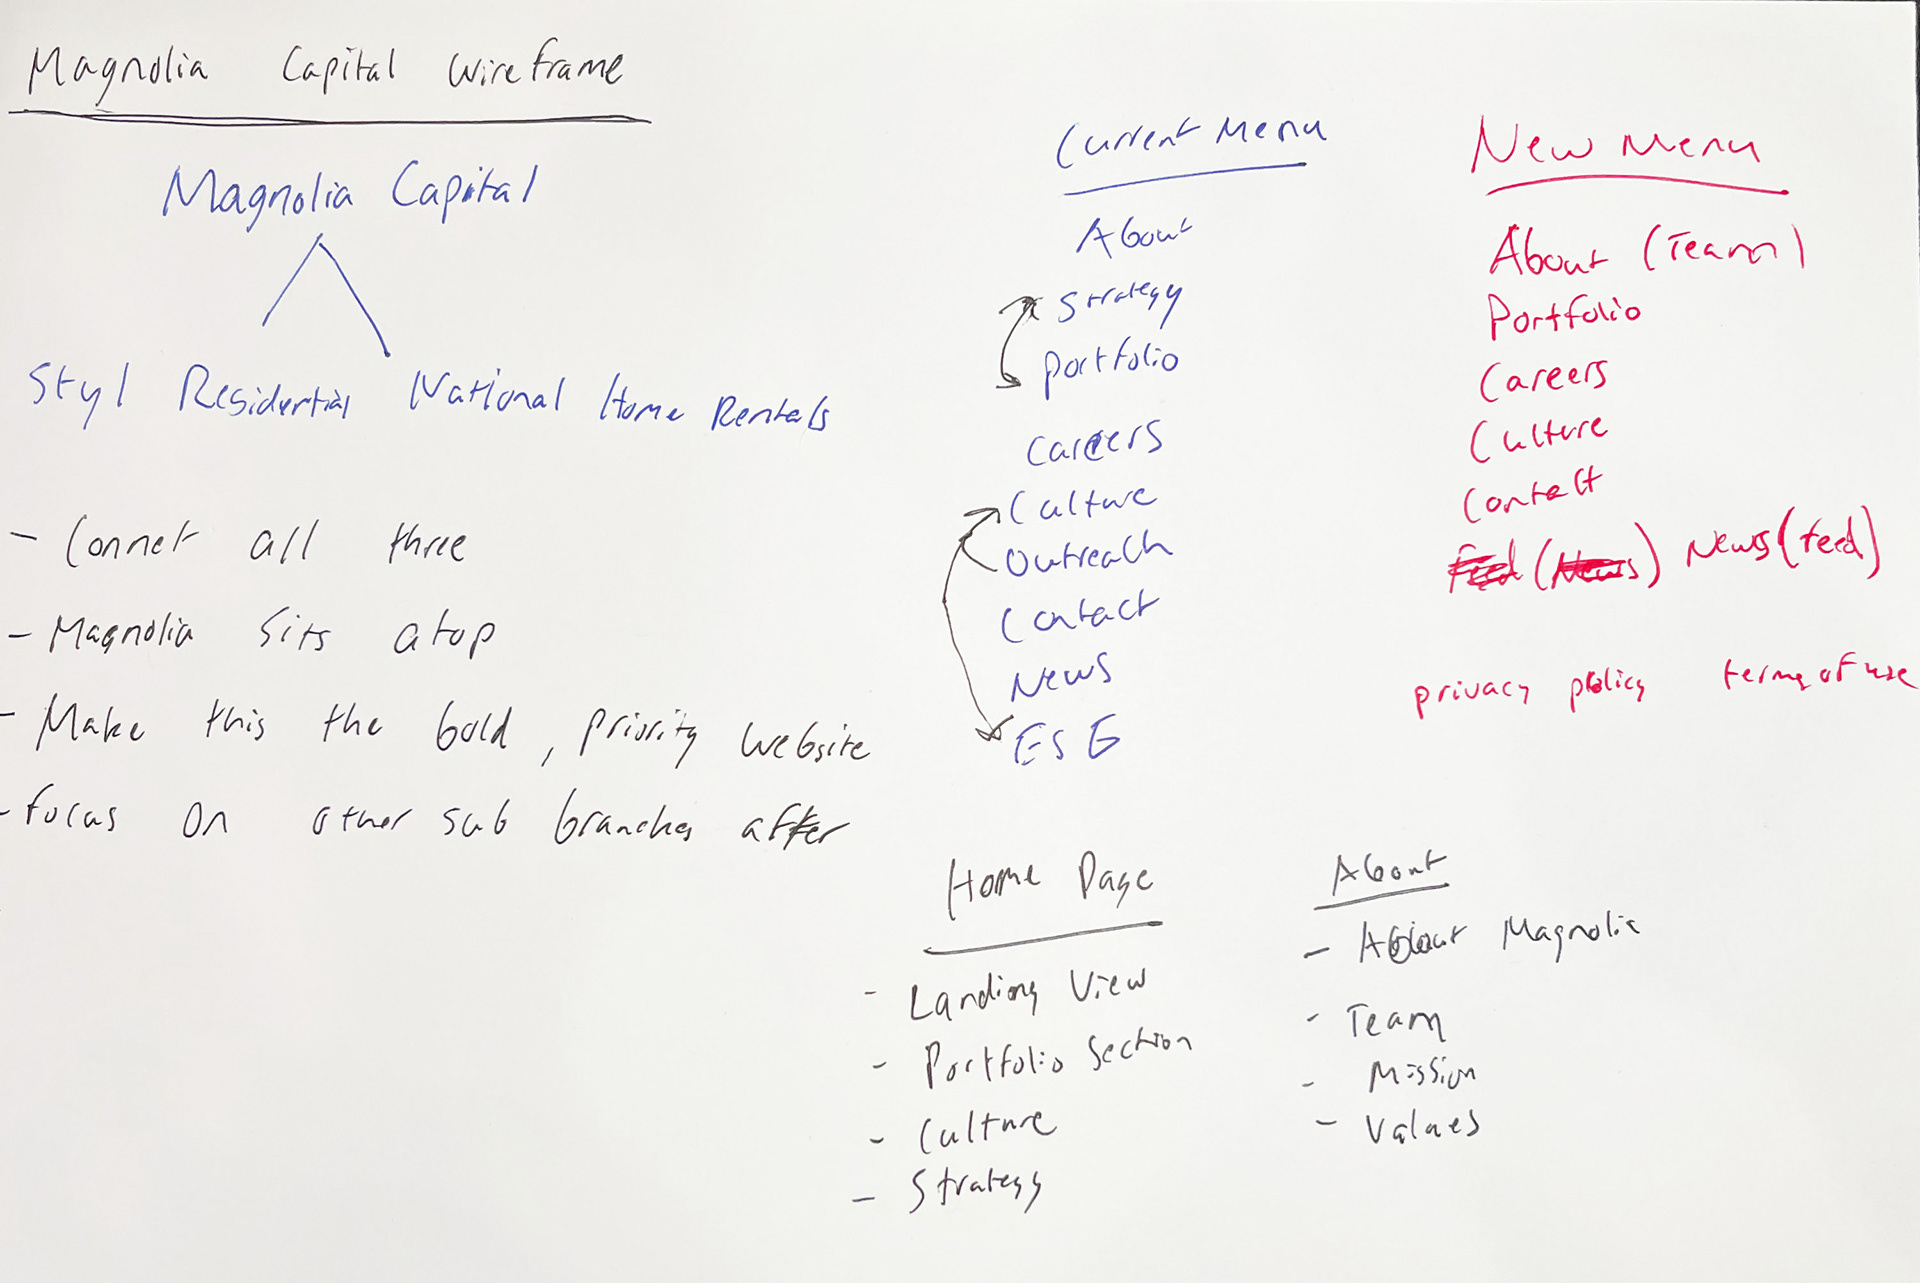 Magnolia Capital Wireframe
Magnolia Capital
Styl Residential National Home Rentals
- Connet all three
- Magnolia sits atop
- Make this the bold, priority website
- focus on other sub branches after
Current Menu
About
Strategy
Portfolio
Careers
Culture
Outreach
Contact
News
ESG
New Menu
About (Team)
Portfolio
Careers
Culture
Contact
Feed (News) News (feed)
privacy policy terms of use
Home Page
- Landing View
- Portfolio Section
- Culture
- Strategy
About
- About Magnolia
- Team
- Mission
- Values